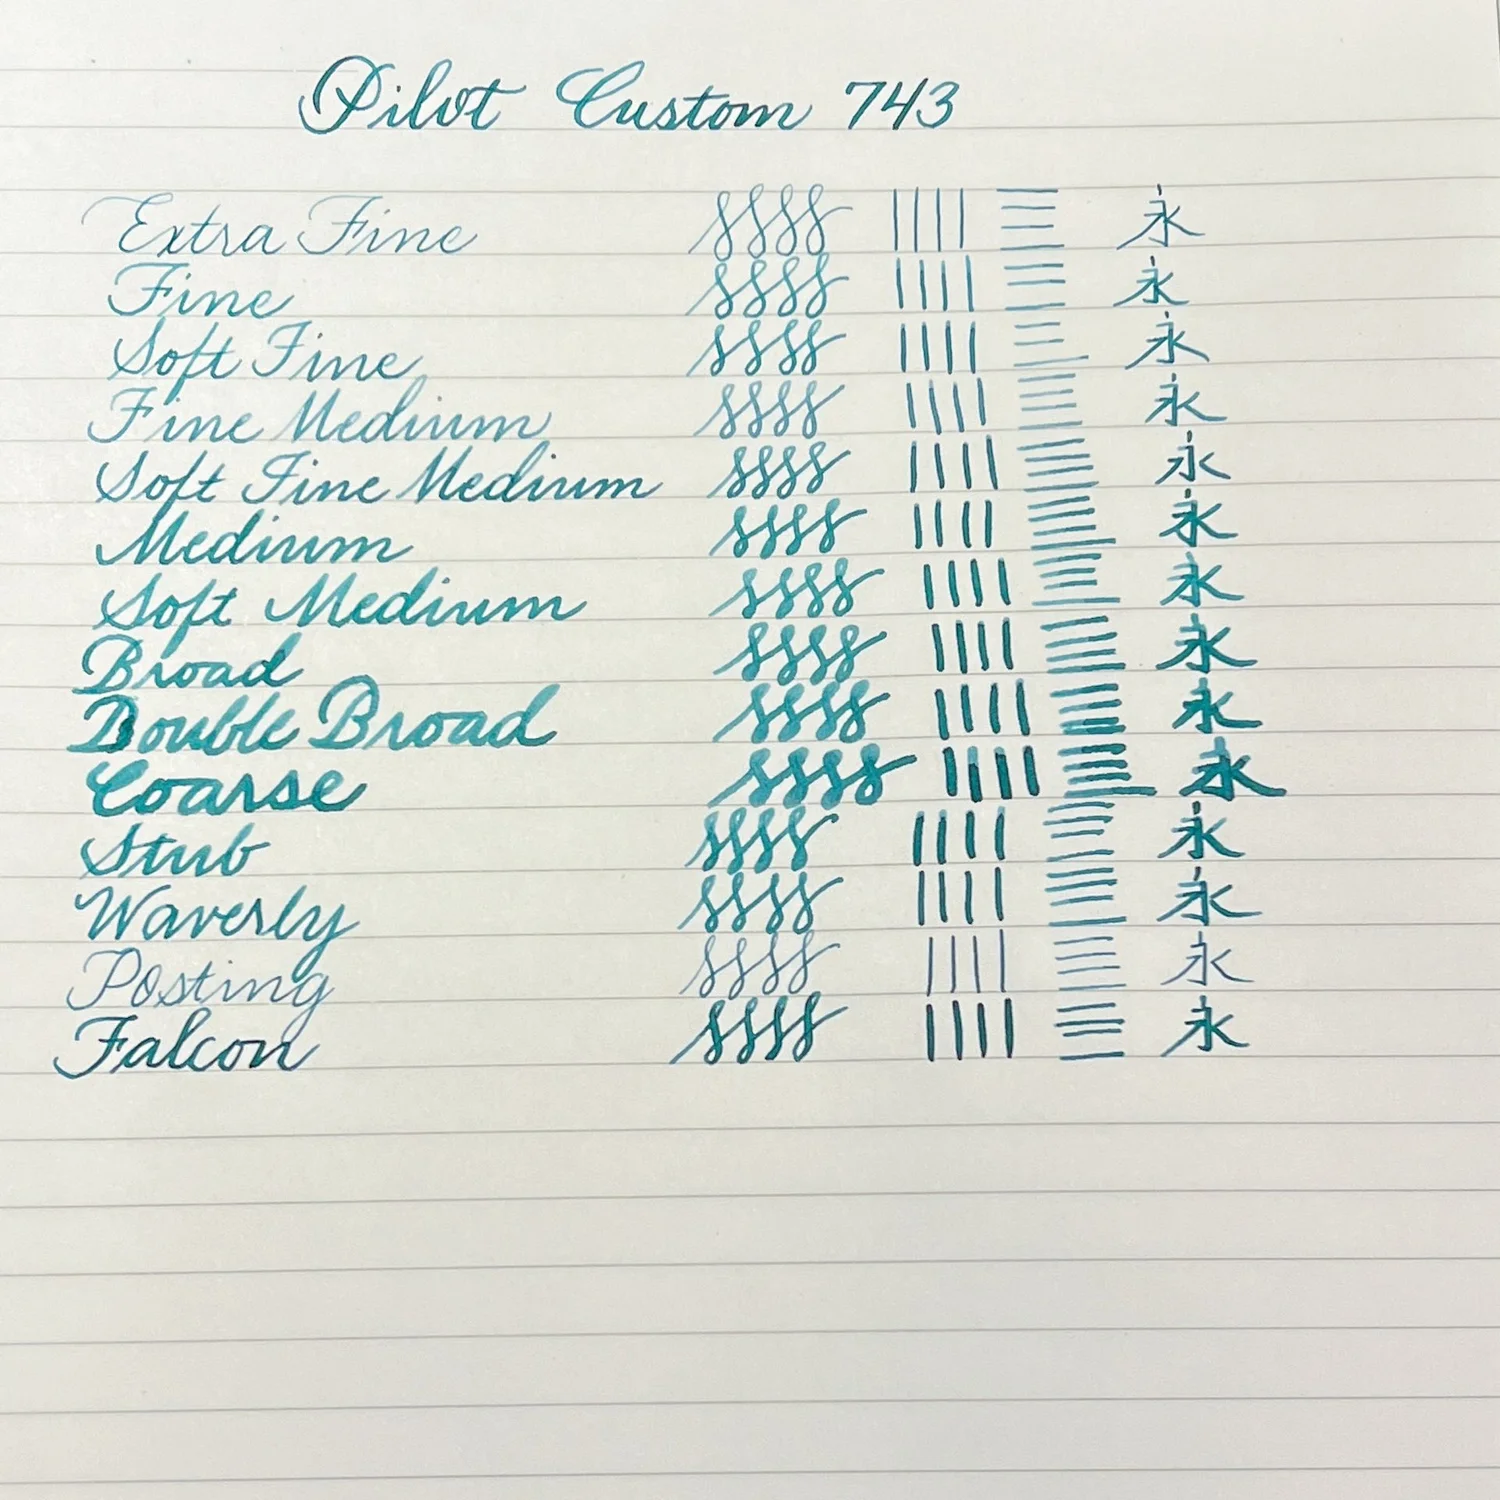 Pilot Custom 743
Extra Fine 永
Fine 永
Soft Fine 永
Fine Medium 永
Soft Fine Medium 永
Medium 永
Soft Medium 永
Broad 永
Double Broad 永
Coarse 永
Stub 永
Waverly 永
Posting 永
Falcon 永